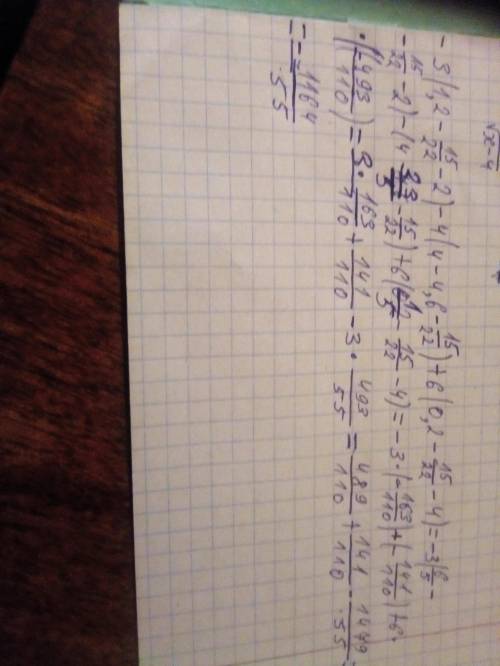 √x-4
-3(1,2 - 15/22 - 2) - 4(4 - 4,6 - 15/22) + 6(0,2 - 15/22 - 4) = -3(6/5 -
- 15/22 - 2) - (4 - 23/5 - 15/22) + 6(1/5 - 15/22 - 4) = -3·(-163/110) + (-141/110) + 6·
·(-493/110) = 3·163/110 + 141/110 - 3·493/55 = 489/110 + 141/110 - 1479/55 =
= - 1164/55